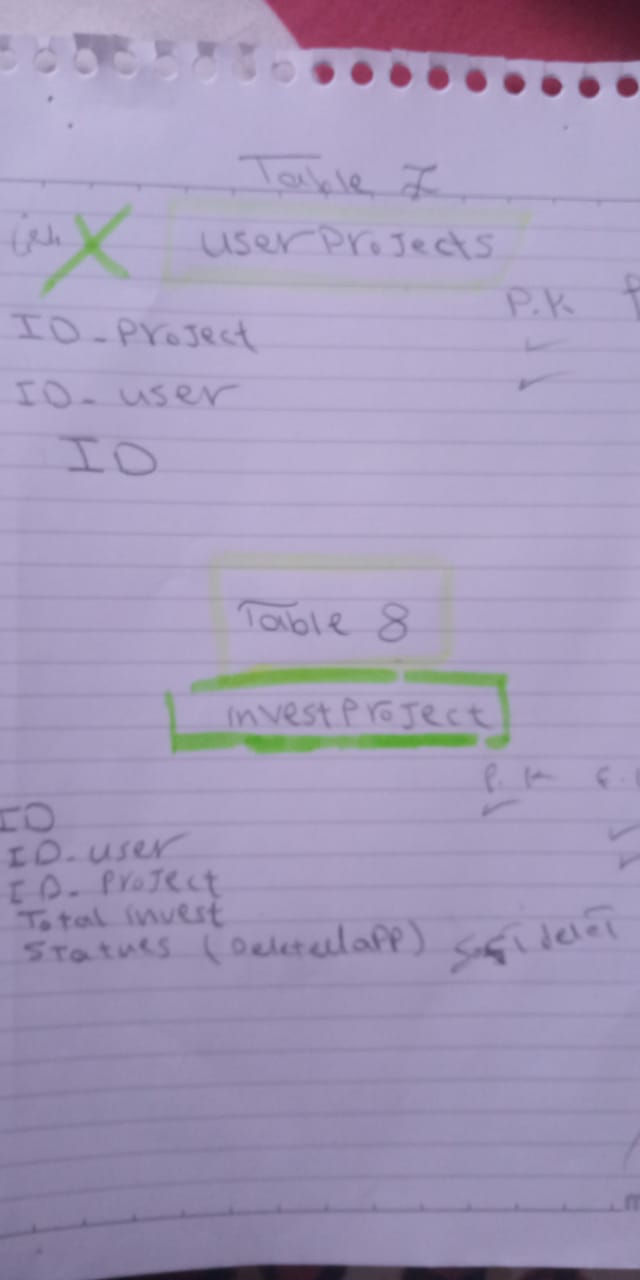 Table 7
userProjects
P.K
ID-Project
ID-user
ID
Table 8
investProject
P.K F.
ID
ID-user
ID-Project
Total invest
Statues (Deleted app)